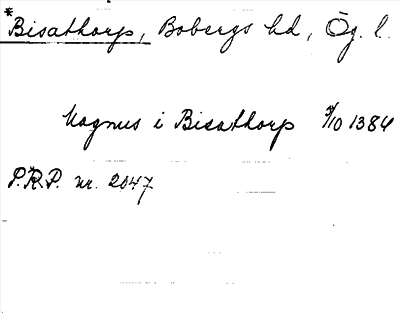 *Bisathorp, Bobergs hd, Ög. l.
Magnus i Bisathorp 3/10 1384
P.R.P. nr. 2047